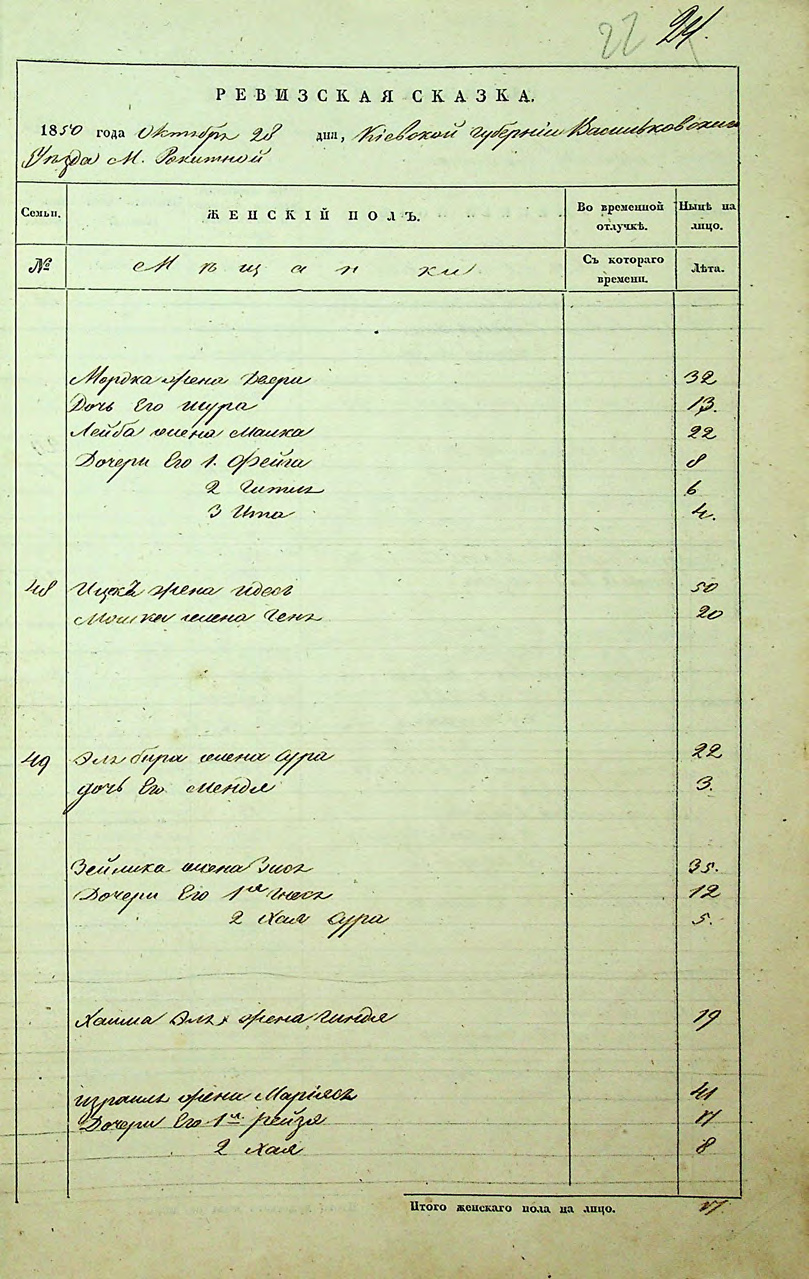 22 24.
РЕВИЗСКАЯ СКАЗКА.
1850 года Октября 28 дня, Кіевской Губерніи Васильковскаго
Уѣзда М. Рокитной
Семьи. ЖЕНСКІЙ ПОЛЪ. Во временной отлучкѣ. Нынѣ на лицо.
№ Мѣщанки Съ котораго времени. Лѣта.
Мордка жена Двери 32
Дочь Его Шура 13.
Лейба жена Малка 22
Дочери Его 1. Фейга 8
2 Гитль 6
3 Ита 4.
48 Ицка жена Идесь 50
Мошка жена Гень 20
49 жена Сура 22
дочь Его Мендя 3.
Зейлика жена Зись 35.
Дочери Его 1я 12
2 Хая Сура 5.
Хаима Эль жена Гиндя 19
Израиль жена Маріясь 41
Дочери Его 1я Рейзя 17
2 Хая 8
Итого женскаго пола на лицо. 17.